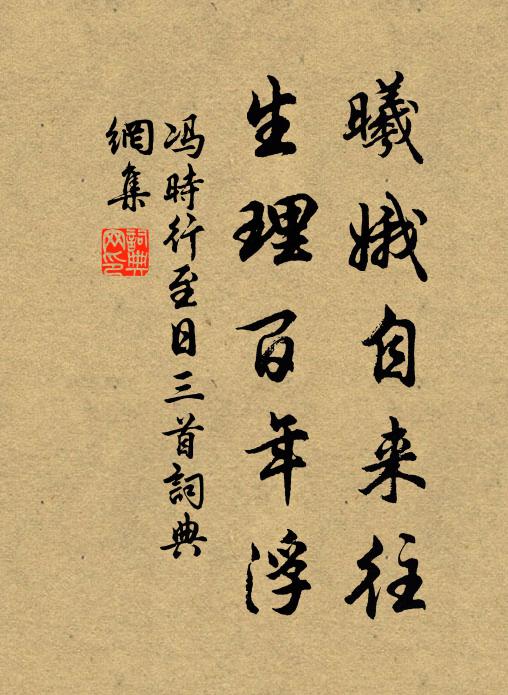 曦娥自来往
生理百年浮
冯時行至日三首詞典
網集
詞典
网印